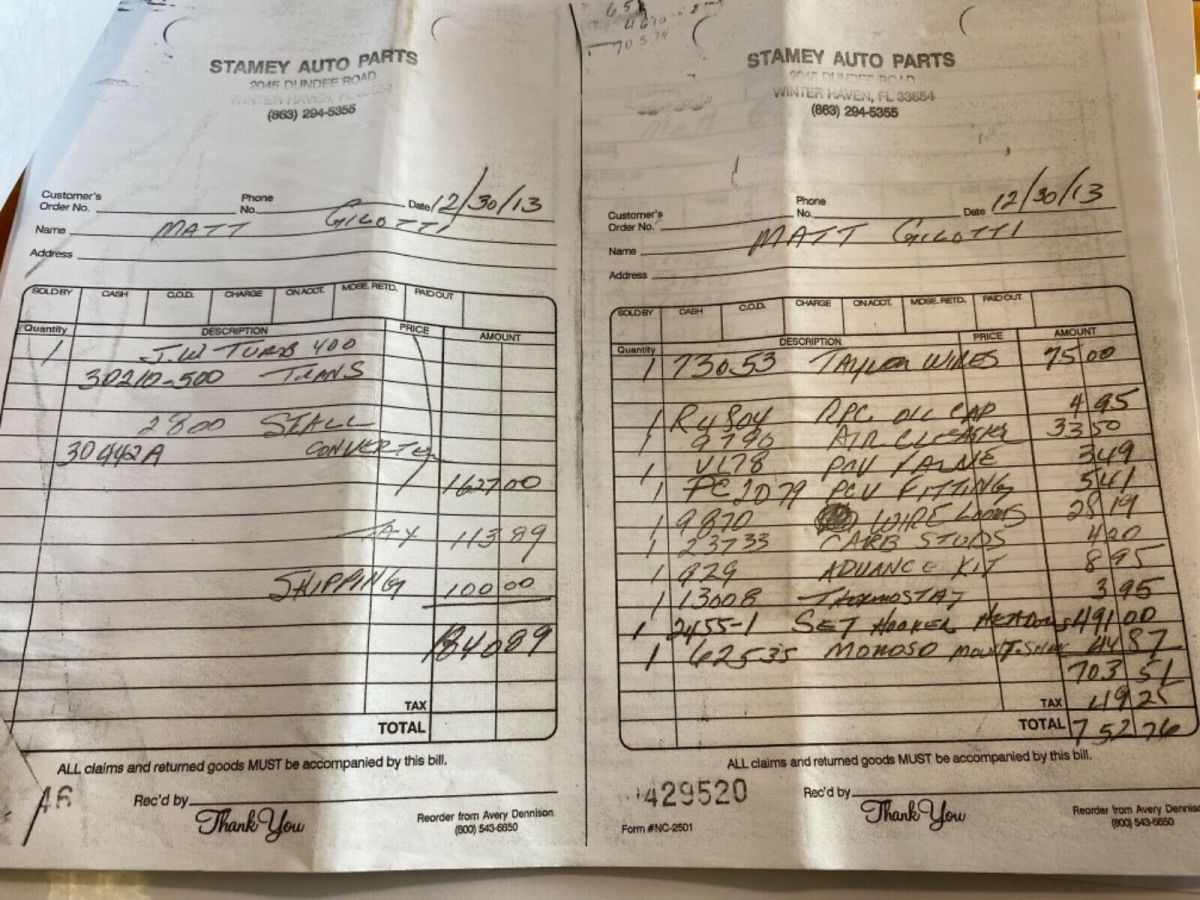 STAMEY AUTO PARTS
2045 DUNDEE ROAD
WINTER HAVEN, FL
(863) 294-5355
Customer's
Order No.
Phone
No.
Date 12/30/13
Name MATT GILOTTI
Address
SOLD BY CASH C.O.D. CHARGE ON ACCT. MDSE. RETD. PAID OUT
Quantity DESCRIPTION PRICE AMOUNT
1 J.W TURBO 400
30210-500 TRANS
2800 STALL
30442A CONVERTER
1 1627 00
TAX 113 89
SHIPPING 100 00
1840 89
TAX
TOTAL
ALL claims and returned goods MUST be accompanied by this bill.
Rec'd by
Thank You
Reorder from Avery Dennison
(800) 543-6650
STAMEY AUTO PARTS
2045 DUNDEE ROAD
WINTER HAVEN, FL 33884
(863) 294-5355
Customer's
Order No.
Phone
No.
Date 12/30/13
Name MATT GILOTTI
Address
SOLD BY CASH C.O.D. CHARGE ON ACCT. MDSE. RETD. PAID OUT
Quantity DESCRIPTION PRICE AMOUNT
1 73053 TAYLOR WIRES 75 00
1 R4804 RPC OIL CAP 4 95
1 9796 AIR CLEANER 33 50
1 V178 PCV VALVE 3 49
1 PC2079 PCV FITTING 5 41
1 9870 WIRE LOOMS 28 19
1 23733 CARB STUDS 4 20
1 929 ADVANCE KIT 8 95
1 13008 THERMOSTAT 3 95
1 2455-1 SET HOOKER HEADERS 491 00
1 62535 MOROSO 44 87
703 51
TAX 49 25
TOTAL 752 76
ALL claims and returned goods MUST be accompanied by this bill.
429520
Rec'd by
Thank You
Form #NC-2501
Reorder from Avery Dennison
(800) 543-6650